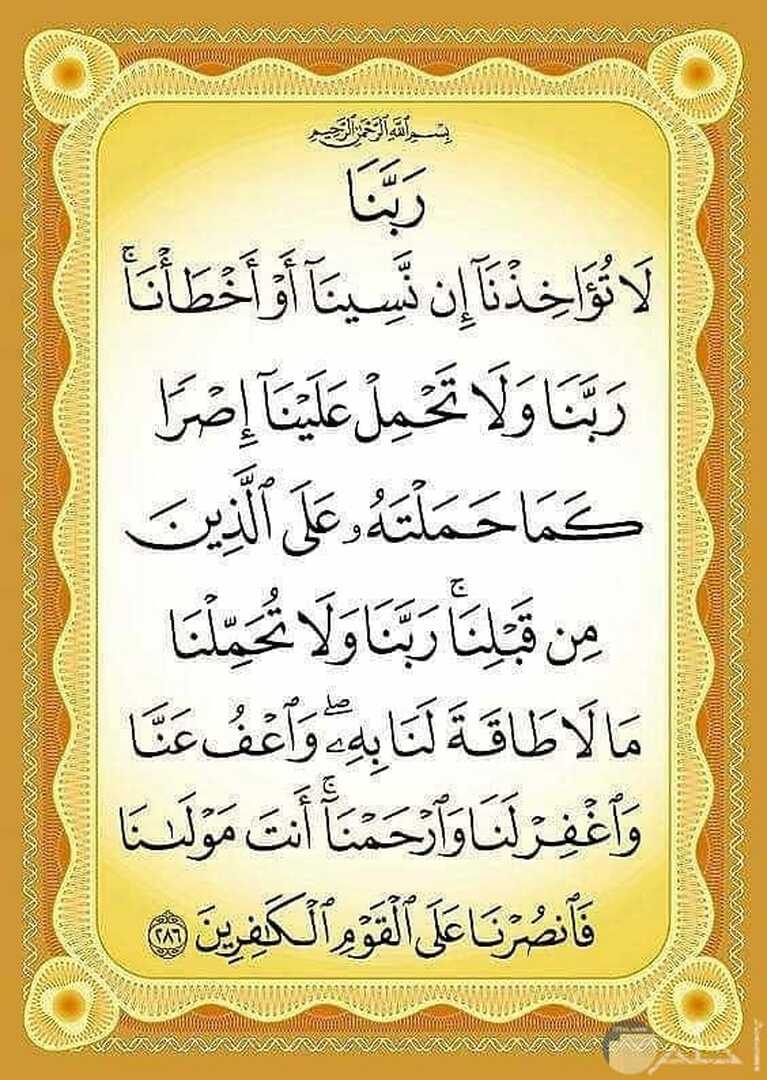 بِسْمِ ٱللَّهِ ٱلرَّحْمَٰنِ ٱلرَّحِيمِ
رَبَّنَا
لَا تُؤَاخِذْنَآ إِن نَّسِينَآ أَوْ أَخْطَأْنَا ۚ
رَبَّنَا وَلَا تَحْمِلْ عَلَيْنَآ إِصْرًا
كَمَا حَمَلْتَهُۥ عَلَى ٱلَّذِينَ
مِن قَبْلِنَا ۚ رَبَّنَا وَلَا تُحَمِّلْنَا
مَا لَا طَاقَةَ لَنَا بِهِۦ ۖ وَٱعْفُ عَنَّا
وَٱغْفِرْ لَنَا وَٱرْحَمْنَآ ۚ أَنتَ مَوْلَىٰنَا
فَٱنصُرْنَا عَلَى ٱلْقَوْمِ ٱلْكَٰفِرِينَ ۝٢٨٦